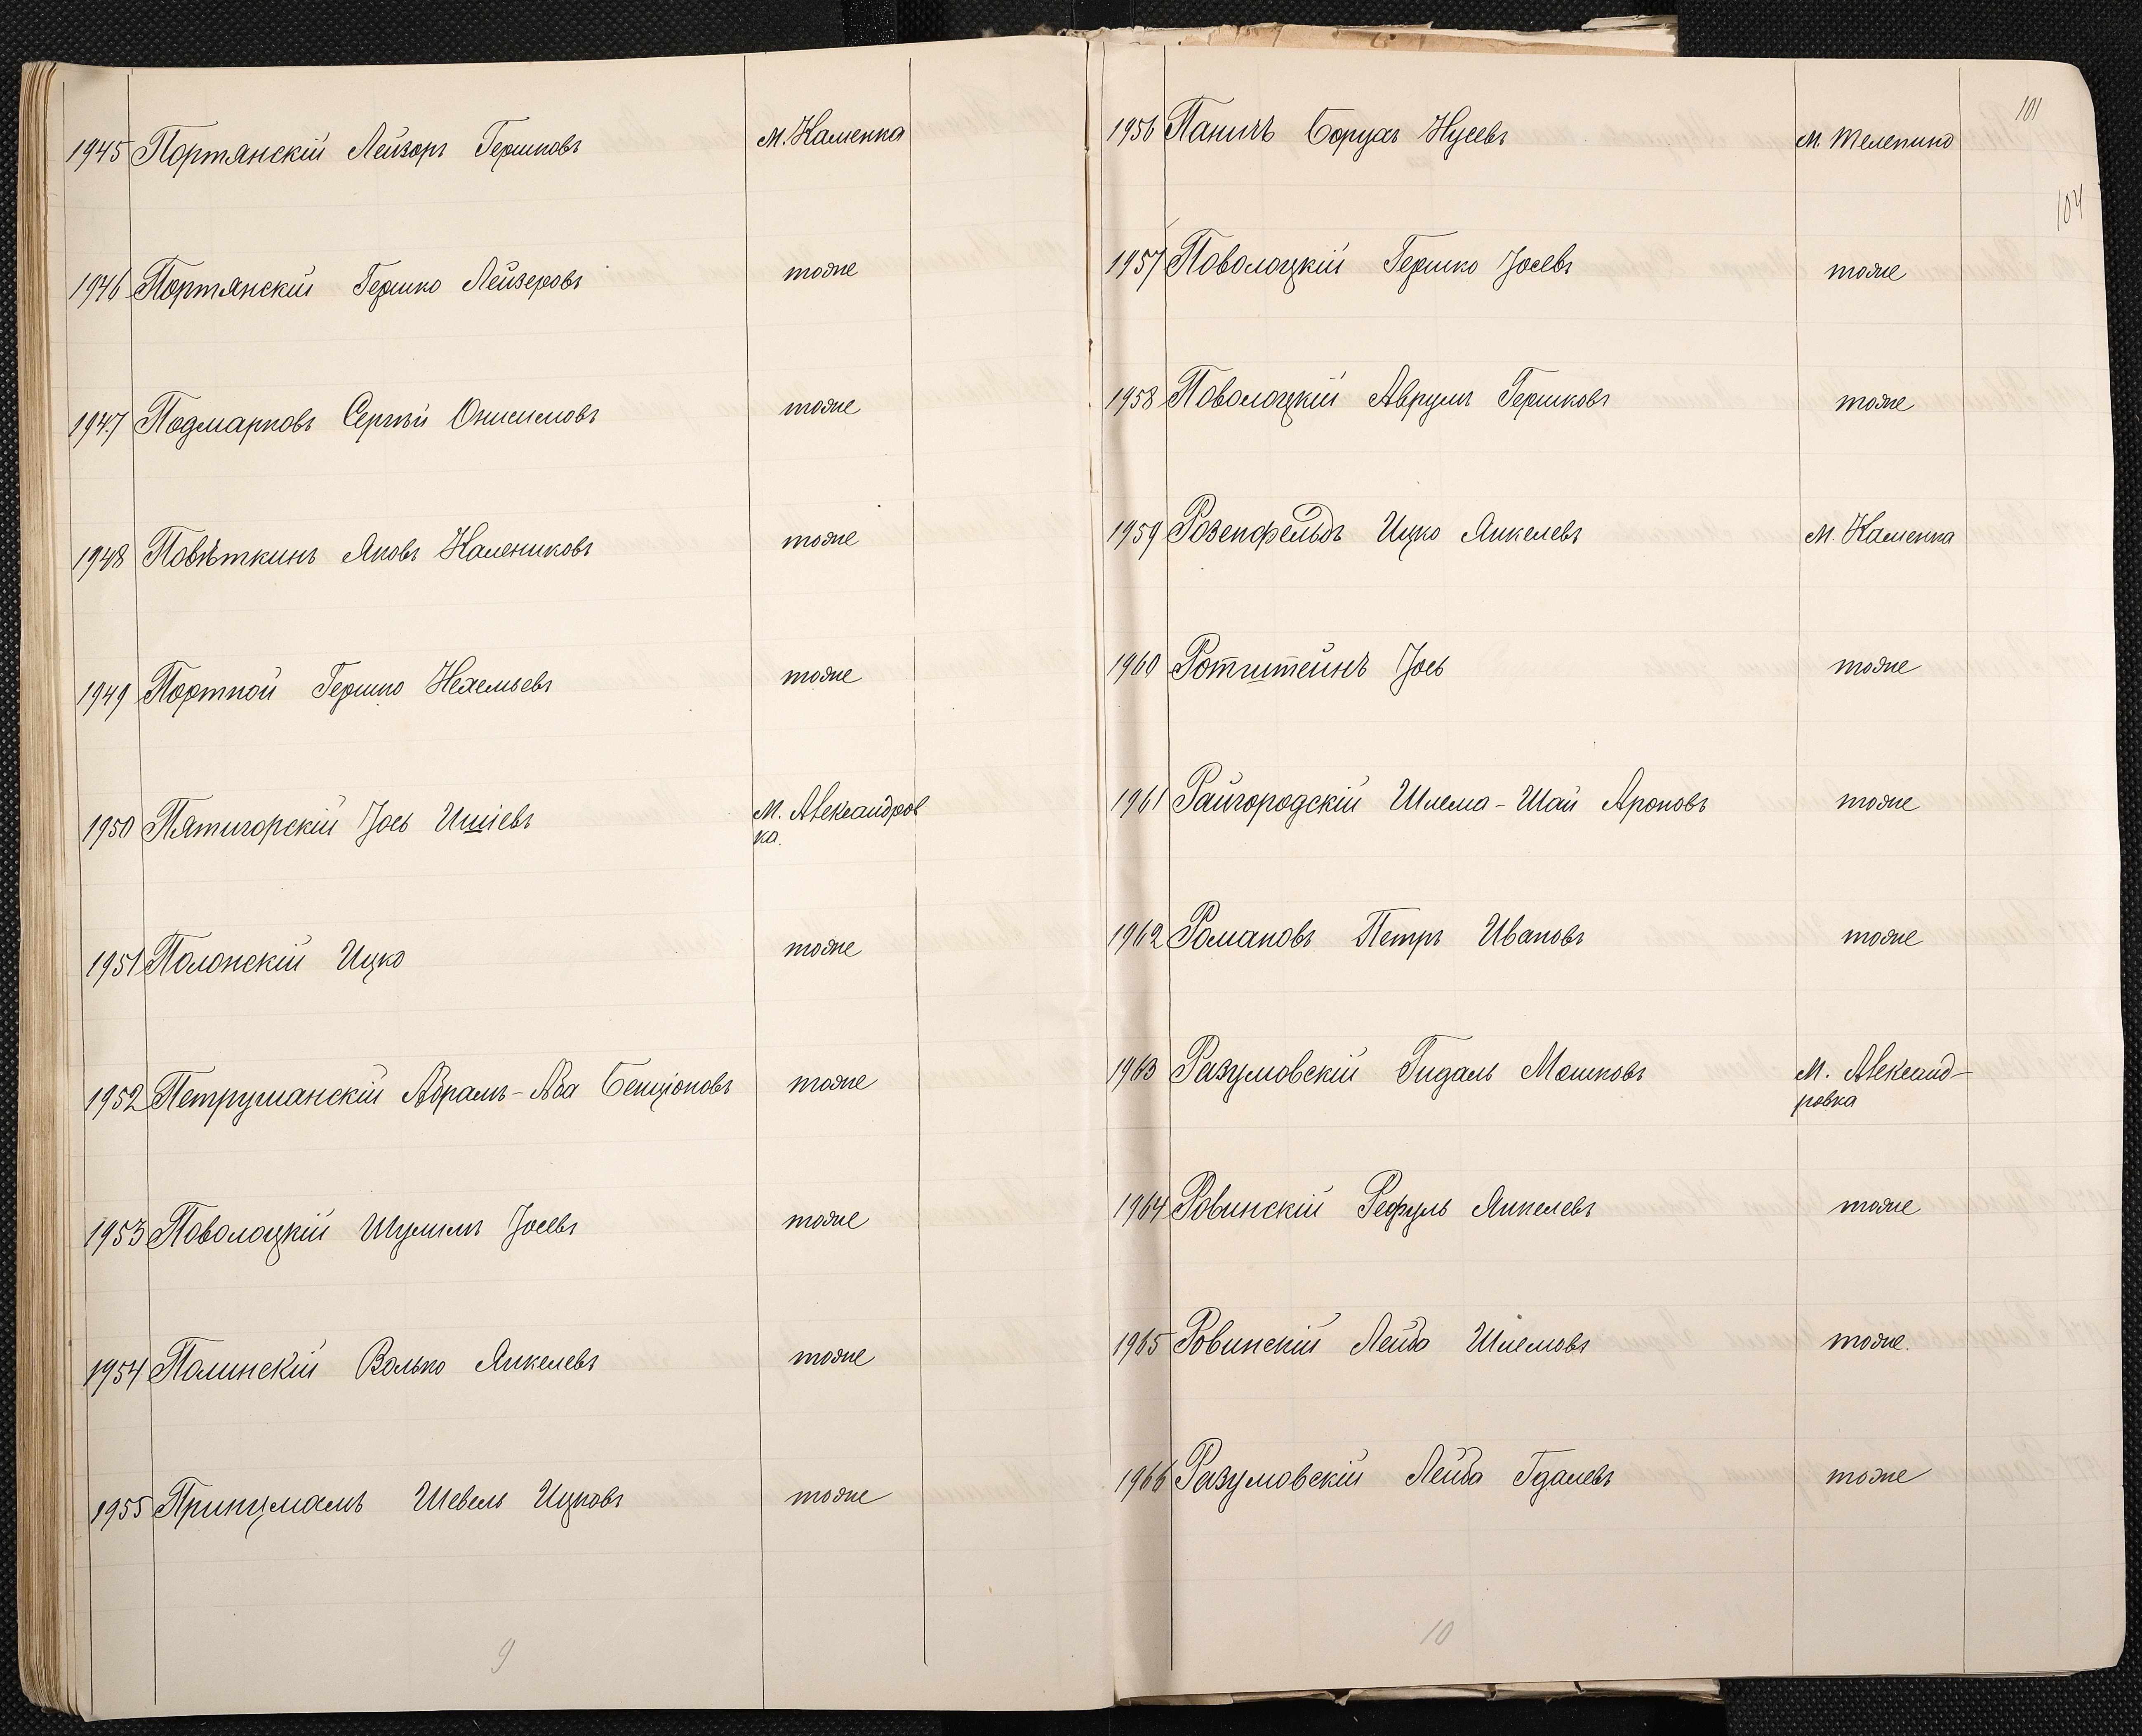 1945 Портянскій Лейзоръ Гершковъ м. Каменка
1946 Портянскій Гершко Лейзеровъ тоже
1947 Подмарковъ Сергѣй Онисимовъ тоже
1948 Повѣткинъ Яковъ Калениковъ тоже
1949 Портной Гершко Нехемьевъ тоже
1950 Пятигорскій Іось Ишіевъ м. Александров
ка.
1951 Полонскій Ицко тоже
1952 Петрушанскій Абрамъ-Аба Бенціоновъ тоже
1953 Поволоцкій Шулимъ Іосевъ тоже
1954 Полинскій Волько Янкелевъ тоже
1955 Принцманъ Шевель Ицковъ тоже
9
101
104
1956 Паничъ Борухъ Нусевъ м. Телепино
1957 Поволоцкій Гершко Іосевъ тоже
1958 Поволоцкій Аврумъ Гершковъ тоже
1959 Розенфельдъ Ицко Янкелевъ м. Каменка
1960 Ротштейнъ Іось тоже
1961 Райгородскій Шлема-Шай Ароновъ тоже
1962 Романовъ Петръ Ивановъ тоже
1963 Разумовскій Гидаль Мошковъ м. Александ-
ровка
1964 Ровинскій Рефуль Янкелевъ тоже
1965 Ровинскій Лейба Шлемовъ тоже.
1966 Разумовскій Лейба Гдалевъ тоже
10